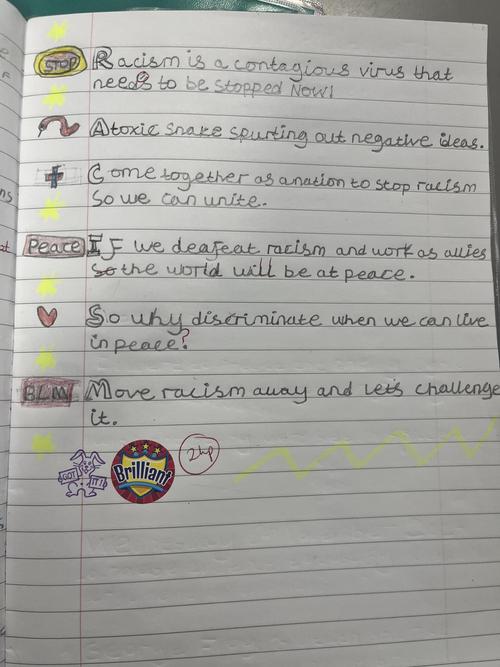 STOP Racism is a contagious virus that
needs to be stopped Now!
A toxic snake spurting out negative ideas.
Come together as a nation to stop racism
So we can unite.
Peace If we deafeat racism and work as allies
so the world will be at peace.
So why discriminate when we can live
in peace?
BLM Move racism away and let's challenge
it.
GOT IT!
Brilliant
2hp